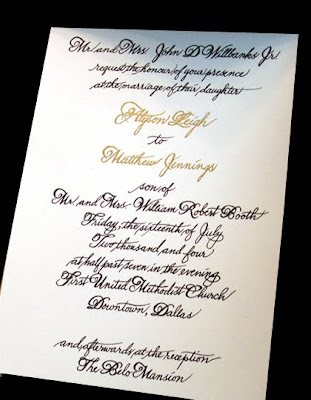 Mr. and Mrs. John D Willbanks Jr.
request the honour of your presence
at the marriage of their daughter
Alyson Leigh
to
Matthew Jennings
son of
Mr. and Mrs. William Robert Booth
Friday, the sixteenth of July
Two thousand and four
at half past seven in the evening
First United Methodist Church
Downtown, Dallas
and afterwards at the reception
The Belo Mansion